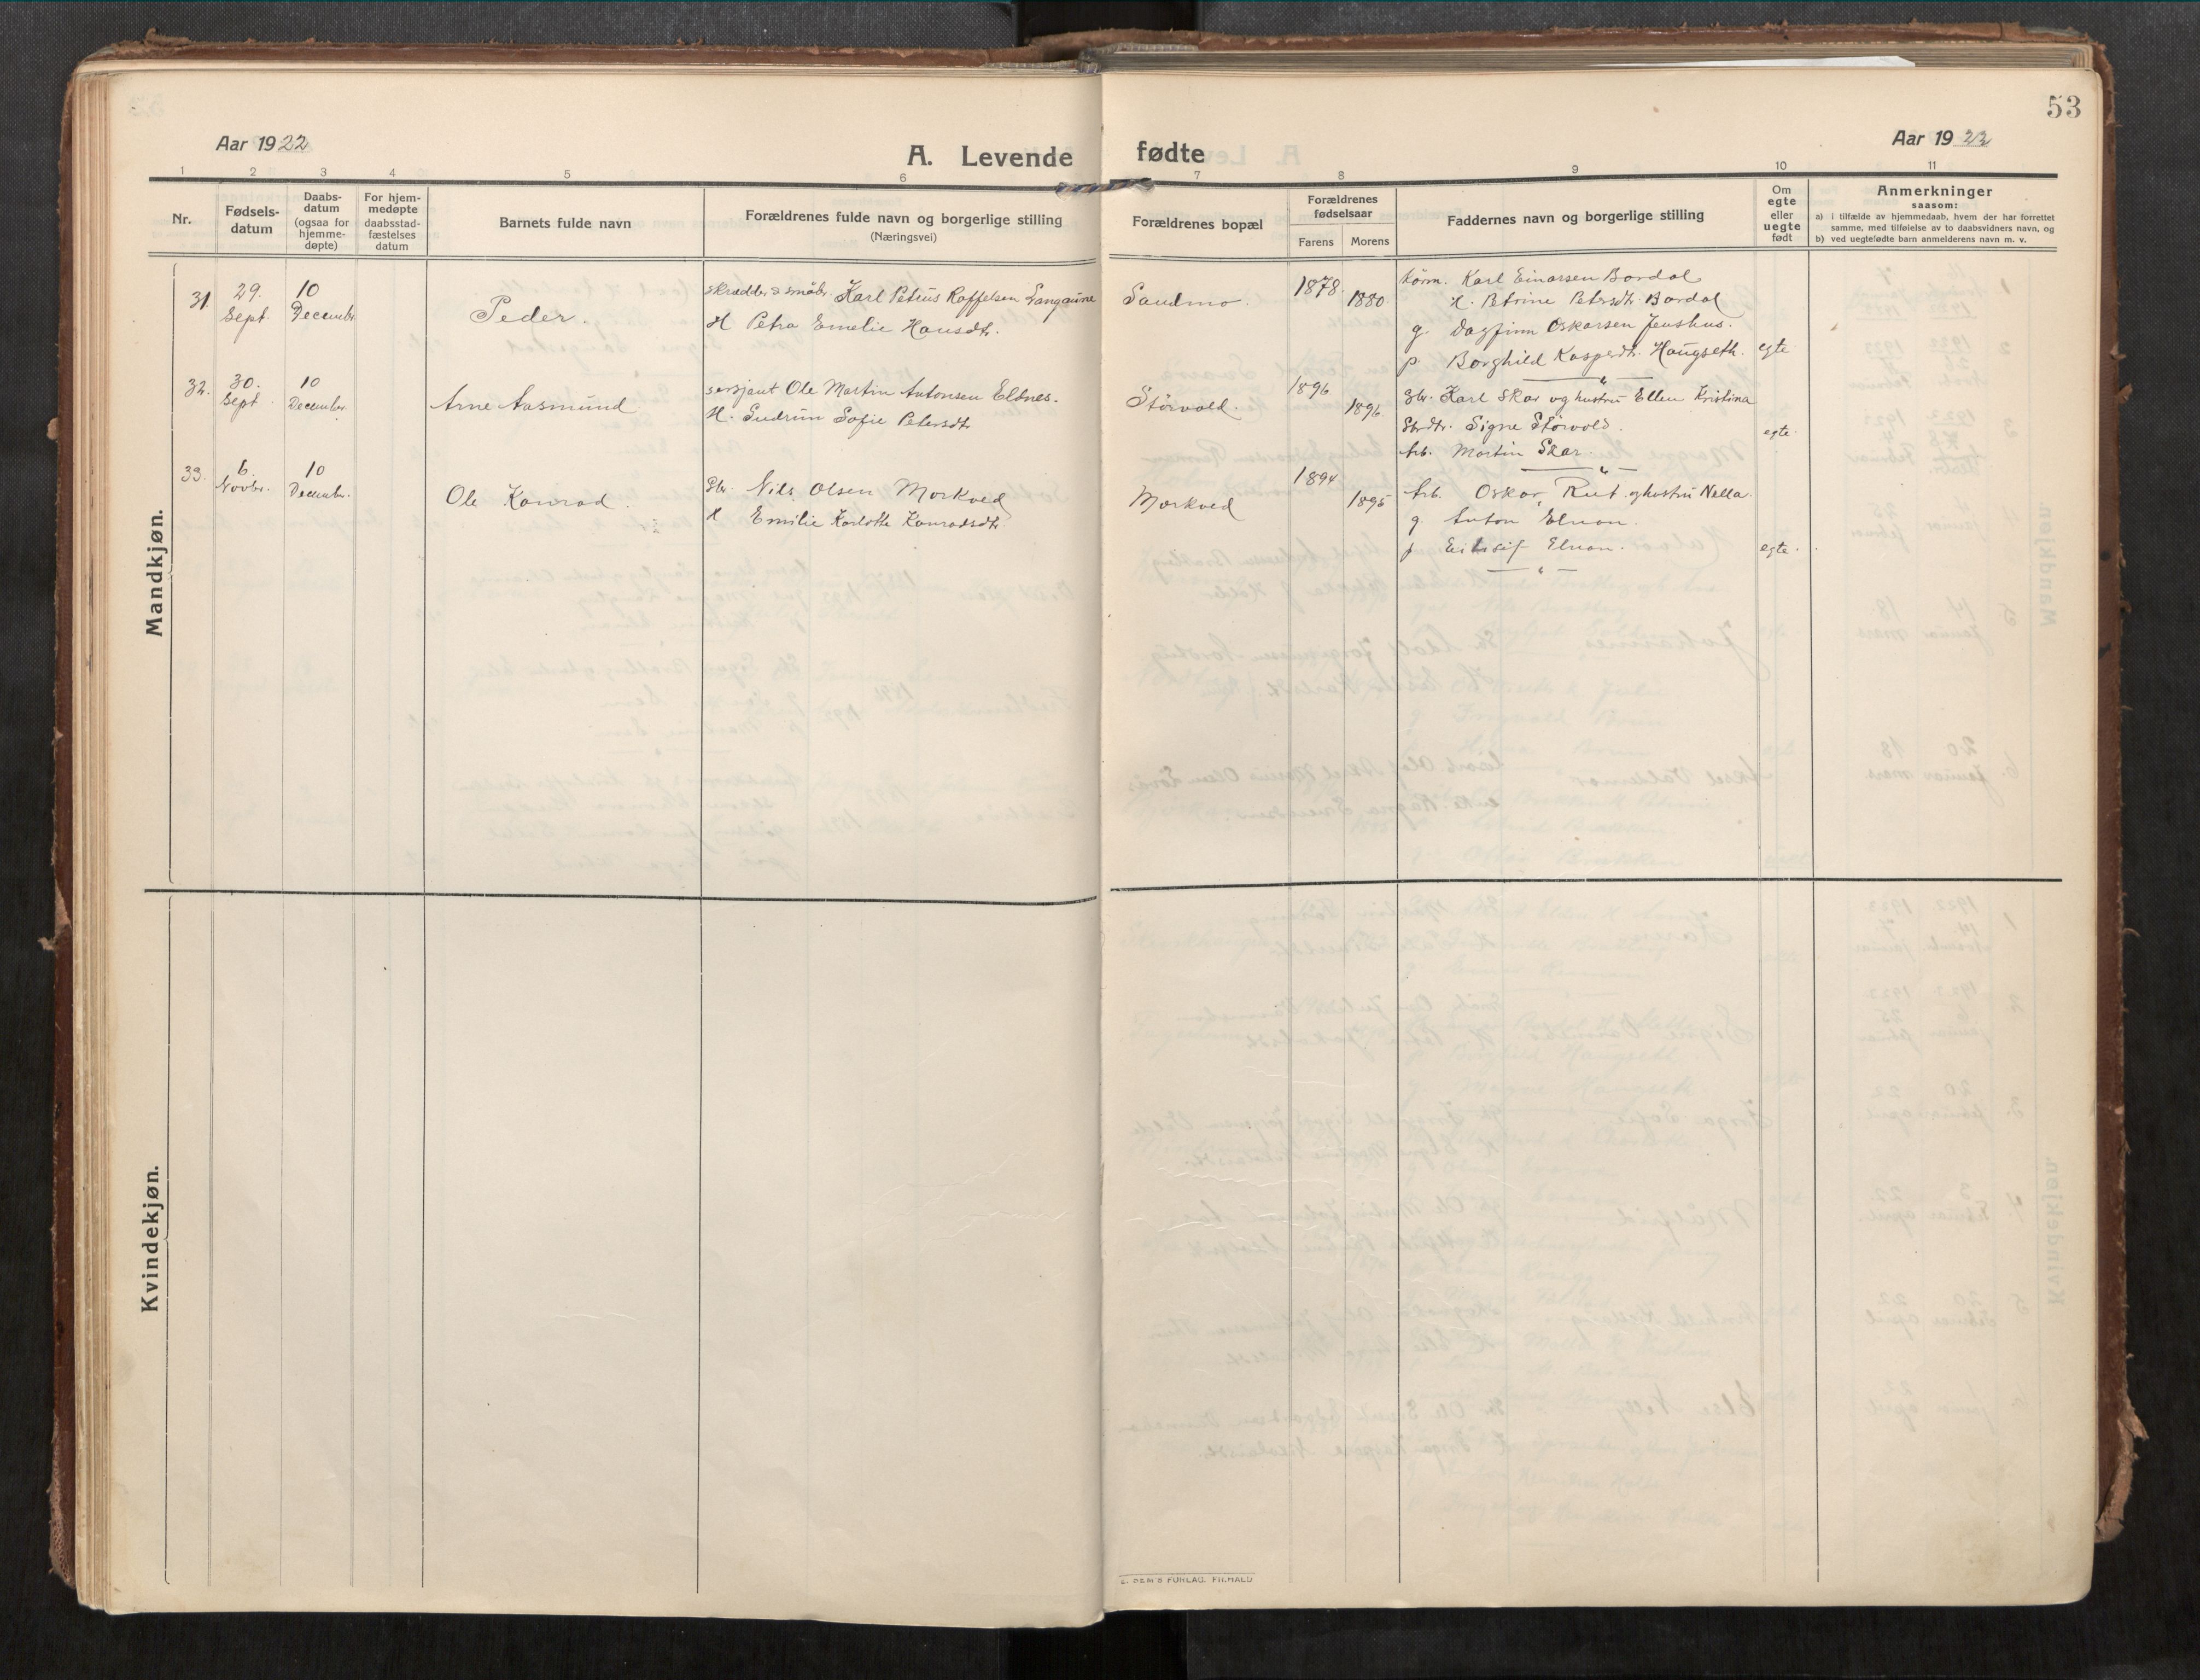 53
Aar 1922
Aar 1922
A. Levende fødte
1 2 3 4 5 6 7 8 9 10 11
Nr.
Fødsels-
datum
Daabs-
datum
(ogsaa for
hjemme-
døpte)
For hjem-
medøpte
daabsstad-
fæstelses
datum
Barnets fulde navn
Forældrenes fulde navn og borgerlige stilling
(Næringsvei)
Forældrenes bopæl
Forældrenes
fødselsaar
Farens Morens
Faddernes navn og borgerlige stilling
Om
egte
eller
uegte
født
Anmerkninger
saasom:
a) i tilfælde av hjemmedaab, hvem der har forrettet
samme, med tilføielse av to daabsvidners navn, og
b) ved uegtefødte barn anmelderens navn m. v.
Mandkjøn.
31
29.
Sept.
10
Decembr.
Peder.
Karl Petrus Roffelsen Langaune
H Petra Emelie Hansdtr.
Sandmo.
1878.
1880
Karl Einarsen Bardal
H. Petrine Petersdtr. Bardal
g. Dagfinn Oskarsen Jenshus.
p Borghild Kaspersdtr. Haugseth.
egte
32.
30.
Sept.
10
December
Arne Aasmund
sersjant Ole Martin Antonsen Eldnes.
H. Gudrun Sofie Petersdtr
Størvold.
1896
1896.
Gbr. Karl Skar og hustru Ellen Kristina
Gbrdtr. Signe Størvold.
Arb. Martin Skar.
egte.
33.
6.
Novbr.
10
Decembr.
Ole Konrad.
Gbr. Nils Olsen Morkved
H Emilie Karlotte Konradsdtr.
Morkved
1894
1895
Arb. Oskar Rut og hustru Nella.
g. Anton Elnan.
p Eilsif Elnan.
egte.
Kvindekjøn.
E. SEM'S FORLAG. FR.HALD